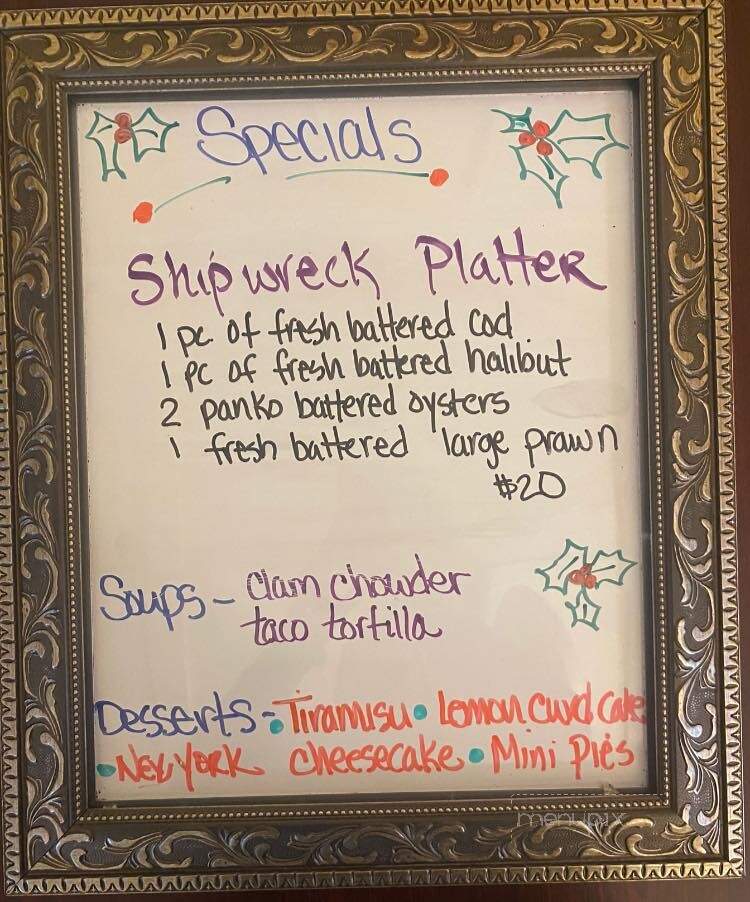 Specials
Shipwreck Platter
1 pc. of fresh battered cod
1 pc of fresh battered halibut
2 panko battered oysters
1 fresh battered large prawn
$20
Soups - clam chowder
taco tortilla
Desserts - • Tiramisu • Lemon Curd Cake
• New York cheesecake • Mini Pies
menupix